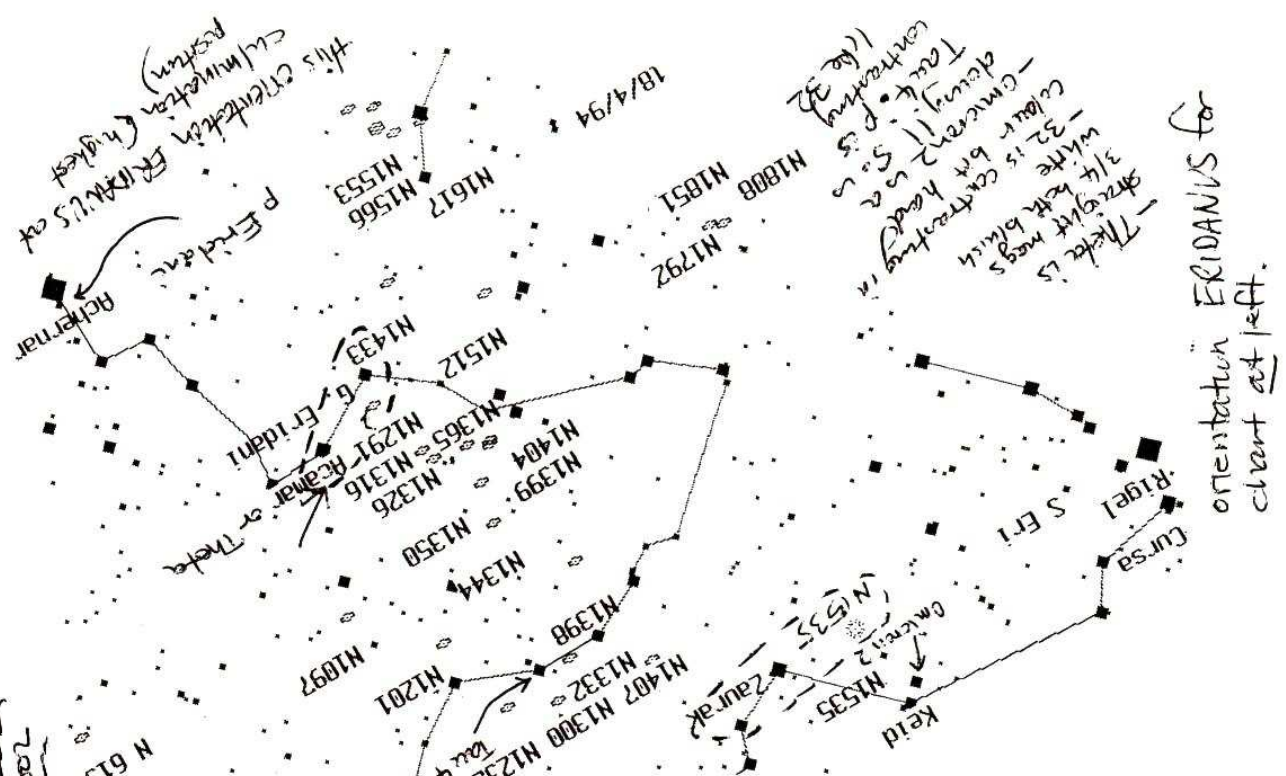 this orientation ERIDANUS at
culmination (highest
position)
18/4/94
- Theta is
straight mags
3/4 both bluish
white
- 32 is contrasting in
colour but hard
- Omicron 2 is a
Tau 4.
contrasting
like 32
orientation ERIDANUS for
chart at left.
p Eridani
Achernar
N1553
N1566
N1617
N1851
N1808
N1792
N1433
N1512
G, Eridani
Acamar or Theta
N1291
N1365
N1316
N1326
N1404
N1399
N1350
N1344
N1398
N1097
N1201
N1332
N1407
N1300
Tau 4
N1535
Omicron 2
Zaurak
N1535
Keid
S Eri
Rigel
Cursa